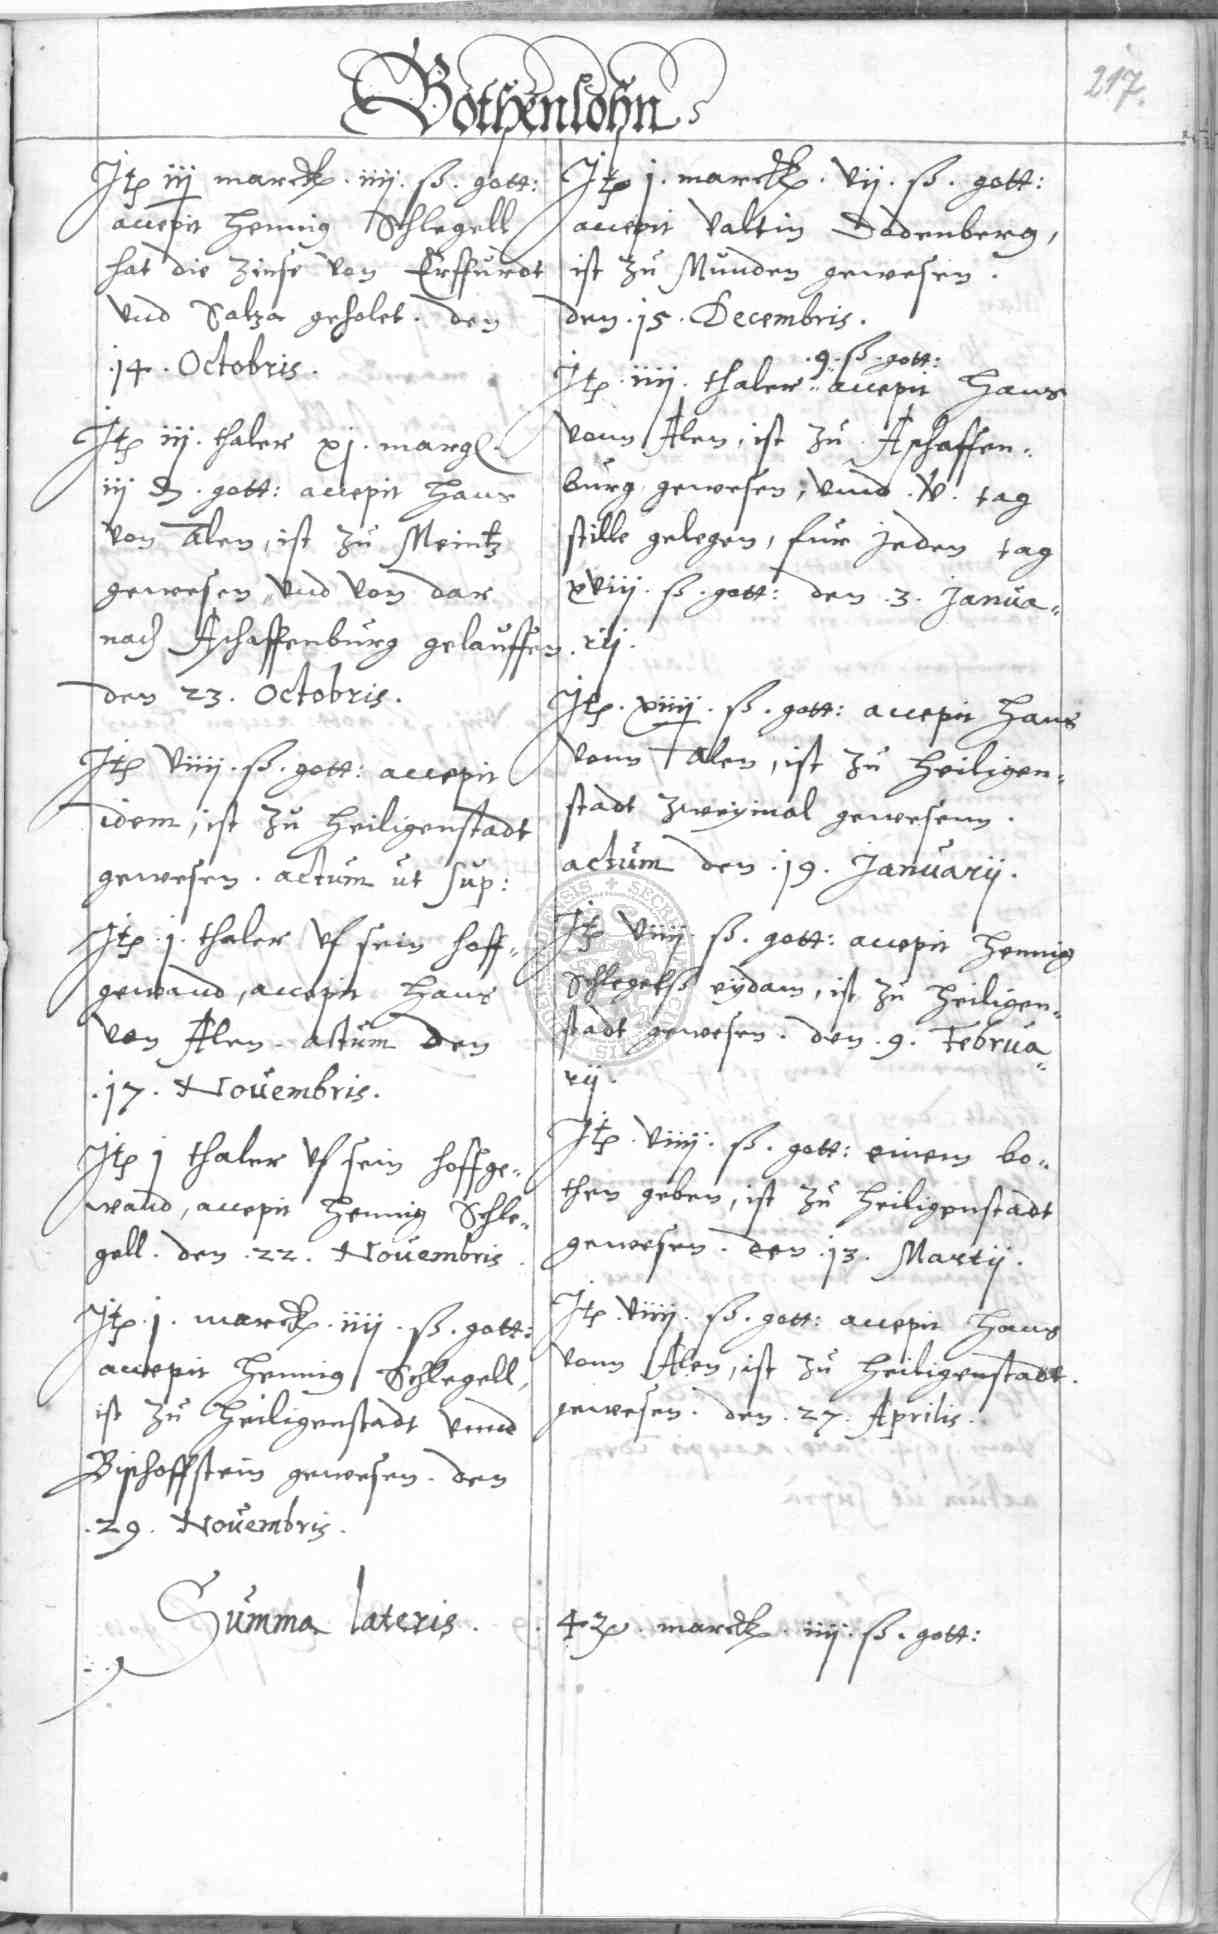 217.
Bothenlohn
Itp iij marck. iiij. ß. gott:
accepit Hennig Schlegell
hat die Zinse von Erffurdt
vnd Saltza geholet. den
.14. Octobris.
Itp iij. thaler xj. margl.
iij ₰. gott: accepit Hans
von Alen, ist zu Meintz
gewesen, vnd von dar
nach Aschaffenburg gelauffen.
den 23. Octobris.
Itp viiij. ß. gott: accepit
idem, ist zu Heiligenstadt
gewesen. actum ut sup:
Itp .j. thaler vf sein hoff=
gewand, accepit Hans
von Alen. actum den
.17. Nouembris.
Itp j thaler vf sein hoffge=
wand, accepit Hennig Schle=
gell. den .22. Nouembris.
Itp .j. marck. iiij. ß. gott:
accepit Hennig Schlegell,
ist zu Heiligenstadt vnnd
Bischoffstein gewesen. den
.29. Nouembris.
Itp j. marck. vij. ß. gott:
accepit Valtin Dodenberg,
ist zu Munden gewesen.
den .15. Decembris.
.9. ß. gott:
Itp .iiij. thaler accepit Hans
vonn Alen, ist zu Aschaffen=
burg gewesen, vnnd .v. tag
stille gelegen, fur jeden tag
xviij. ß. gott: den .3. Janua=
rij.
Itp. xviiij. ß. gott: accepit Hans
vonn Alen, ist zu Heiligen=
stadt zweymal gewesenn.
actum den .19. Januarij.
Itp viiij. ß. gott: accepit Hennig
Schlegelß eydam, ist zu Heiligen=
stadt gewesen. den .9. Februa=
rij.
Itp .viiij. ß. gott: einem bo=
then geben, ist zu Heiligenstadt
gewesen. den .13. Martij.
Itp .viiij. ß. gott: accepit Hans
vonn Alen, ist zu Heiligenstadt.
gewesen. den .27. Aprilis.
Summa lateris. marck. iiij. ß. gott: